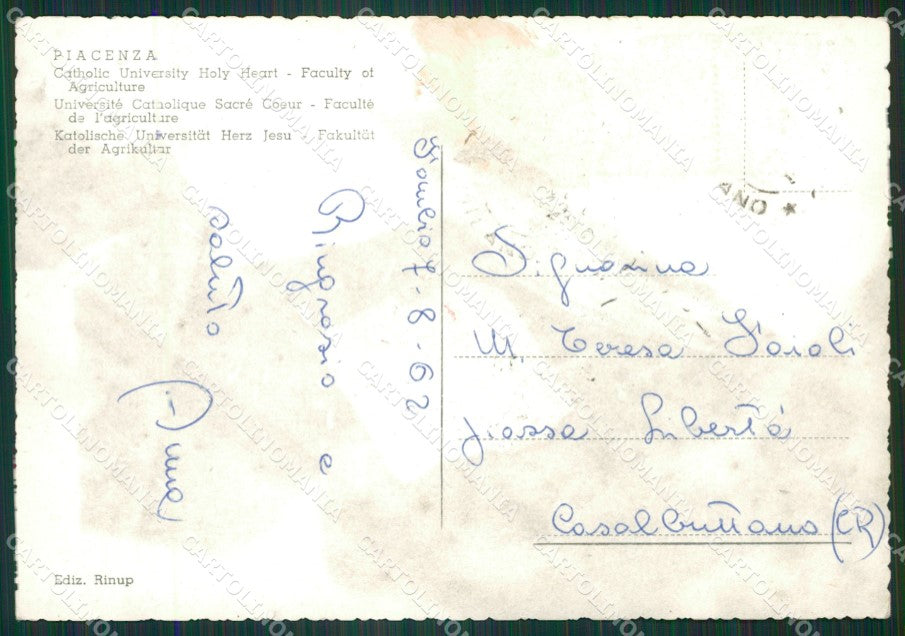 PIACENZA
Catholic University Holy Heart - Faculty of
Agriculture
Université Catholique Sacré Coeur - Faculté
de l'agriculture
Katolische Universität Herz Jesu - Fakultät
der Agrikultur
7-8-62
Ringrazio e
saluto
Anna
ANO *
Signorina
M. Teresa
piazza Libertà
Casalbuttano (CR)
Ediz. Rinup
CARTOLINOMANIA